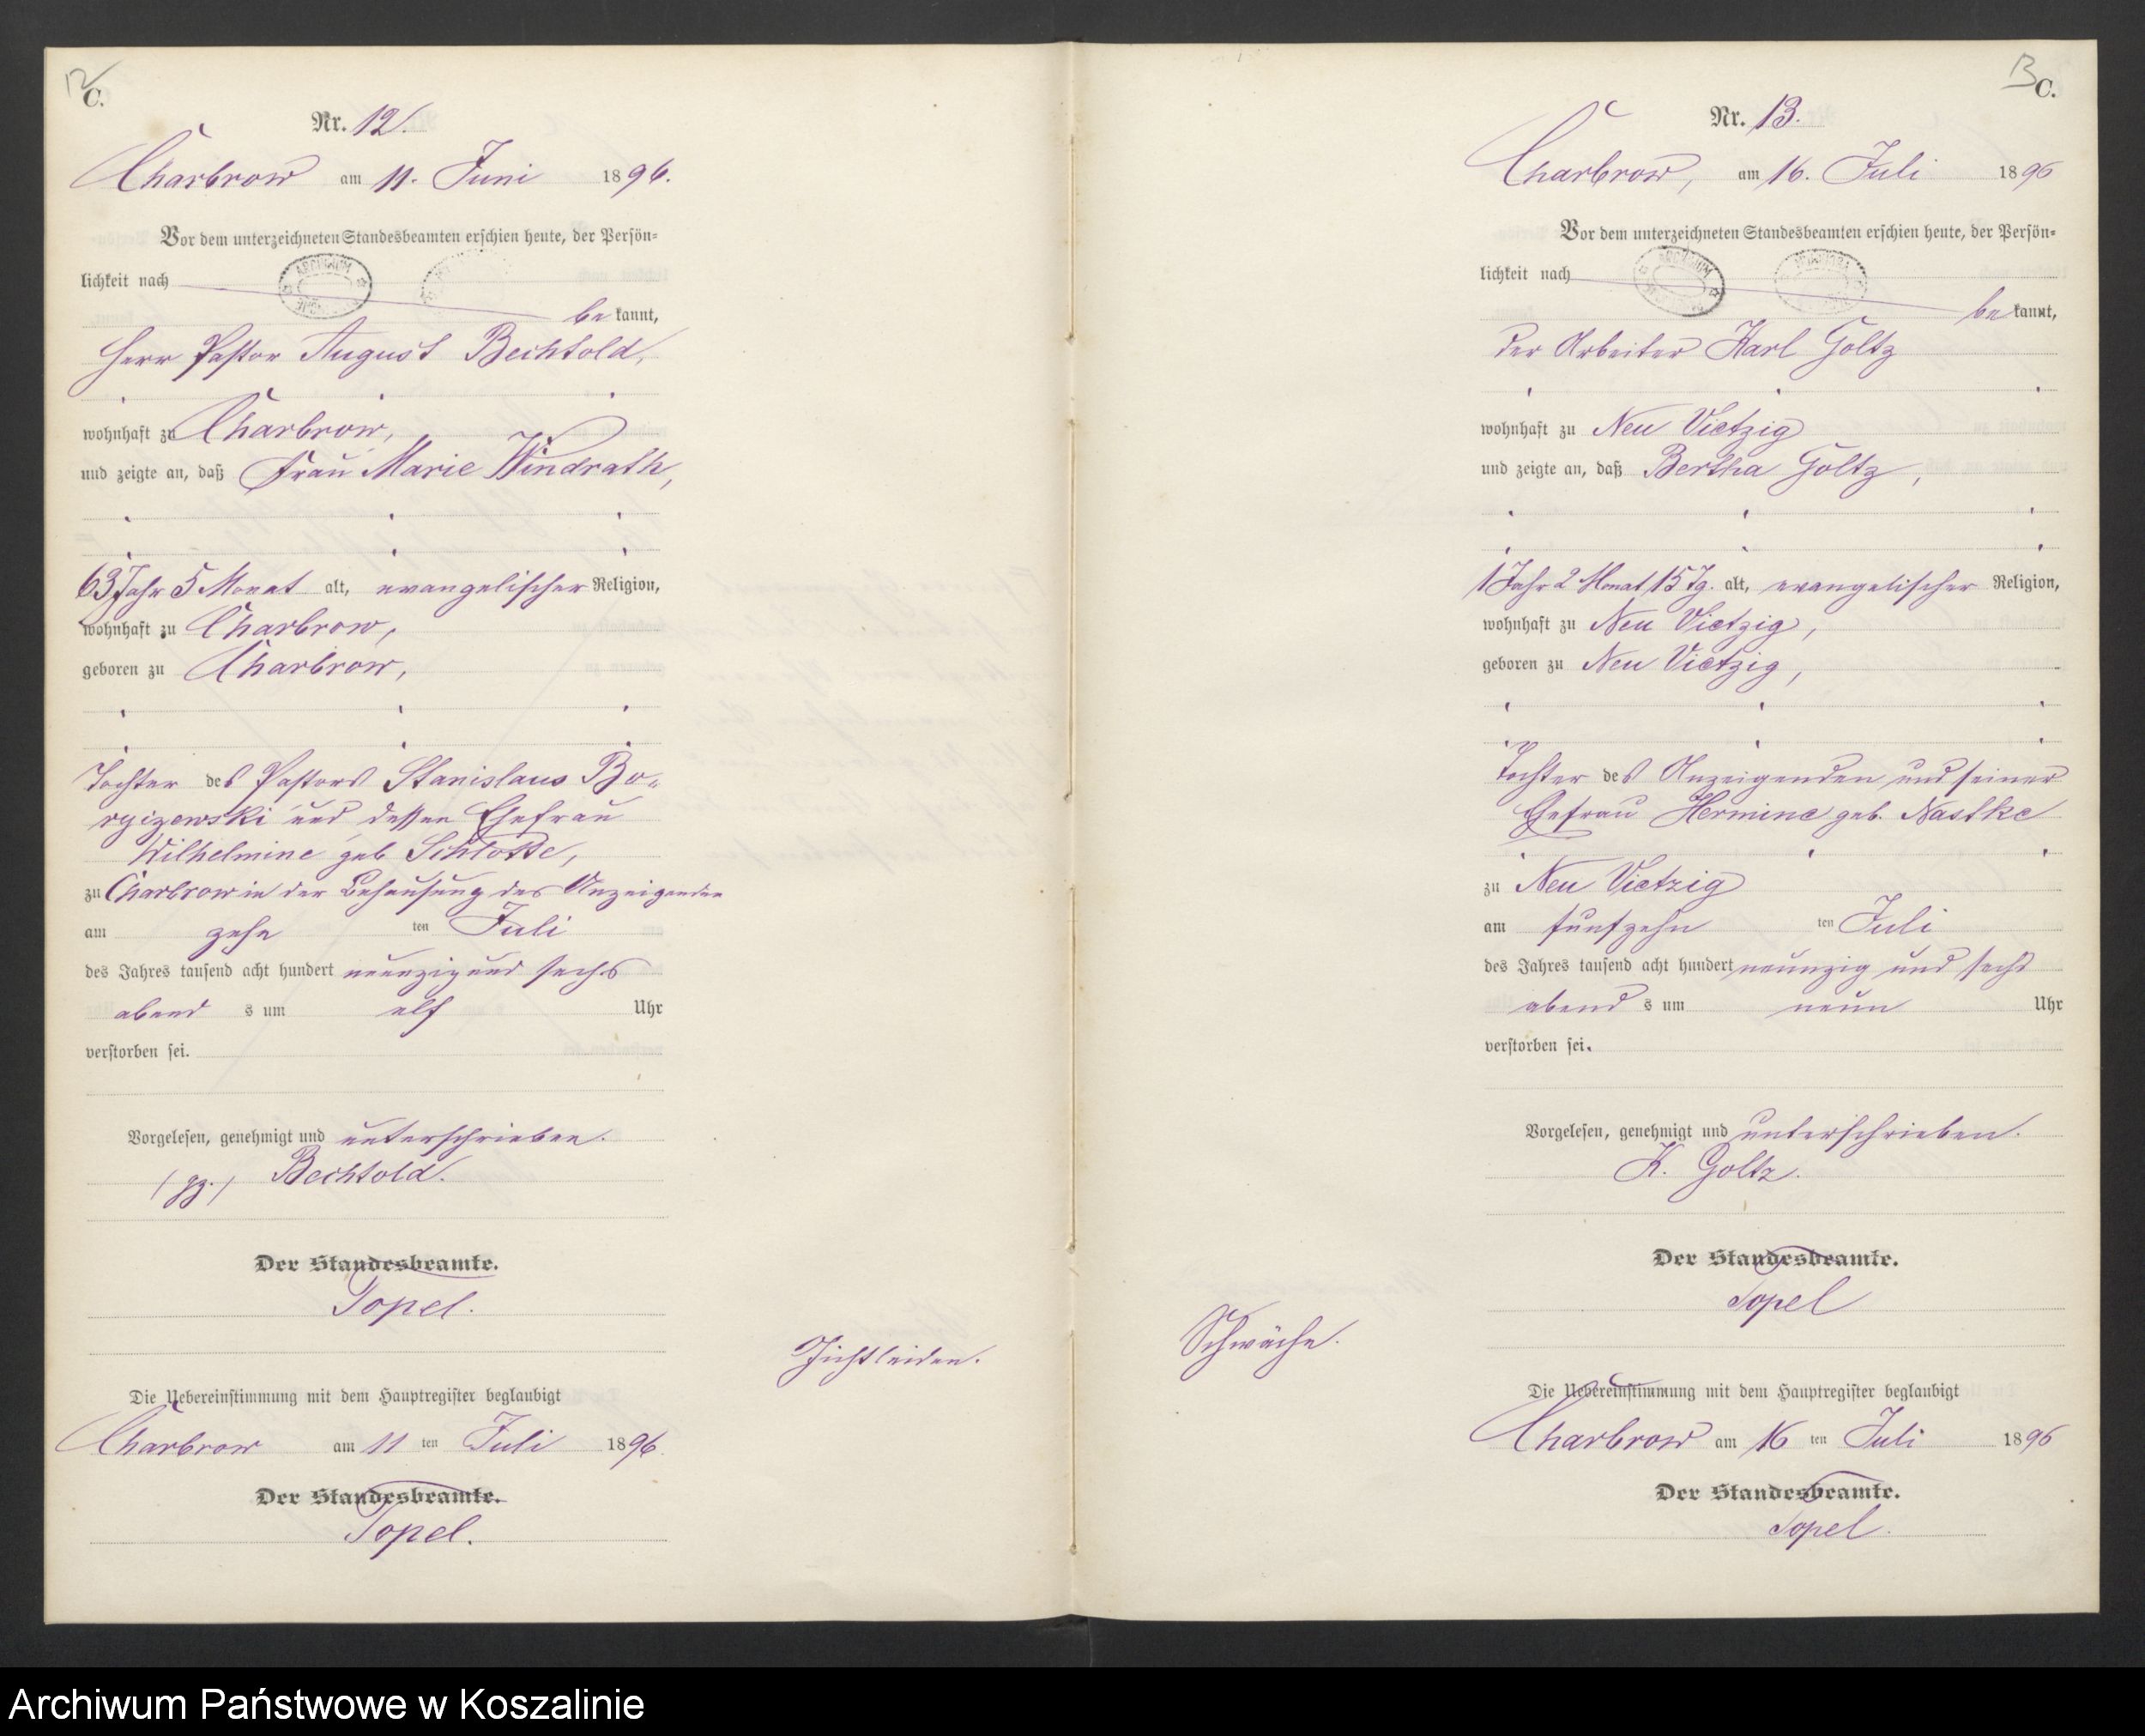 12
C.
Nr. 12.
Charbrow am 11. Juni 1896.
Vor dem unterzeichneten Standesbeamten erschien heute, der Persön-
lichkeit nach
bekannt,
Herr Pastor August Bechtold,
wohnhaft zu Charbrow,
und zeigte an, daß Frau Marie Windrath,
63 Jahr 5 Monat alt, evangelischer Religion,
wohnhaft zu Charbrow,
geboren zu Charbrow,
Tochter des Pastors Stanislaus Bo-
und dessen Ehefrau
Wilhelmine geb.
zu Charbrow in der Behausung des Anzeigenden
am zehn ten Juli
des Jahres tausend acht hundert neunzig und sechs
abend s um elf Uhr
verstorben sei.
Vorgelesen, genehmigt und unterschrieben.
(gz.) Bechtold.
Der Standesbeamte.
Topel.
Die Uebereinstimmung mit dem Hauptregister beglaubigt
Charbrow am 11 ten Juli 1896.
Der Standesbeamte.
Topel.
Gichtleiden.
13
C.
Nr. 13.
Charbrow, am 16. Juli 1896
Vor dem unterzeichneten Standesbeamten erschien heute, der Persön-
lichkeit nach
bekannt,
der Arbeiter Karl Goltz
wohnhaft zu Neu Vietzig
und zeigte an, daß Bertha Goltz,
1 Jahr 2 Monat 15 Tg. alt, evangelischer Religion,
wohnhaft zu Neu Vietzig,
geboren zu Neu Vietzig,
Tochter des Anzeigenden und seiner
Ehefrau Hermine geb. Nastke
zu Neu Vietzig
am funfzehn ten Juli
des Jahres tausend acht hundert neunzig und sechs
abend s um neun Uhr
verstorben sei.
Vorgelesen, genehmigt und unterschrieben.
K. Goltz.
Der Standesbeamte.
Topel
Schwäche.
Die Uebereinstimmung mit dem Hauptregister beglaubigt
Charbrow am 16 ten Juli 1896
Der Standesbeamte.
Topel.
Archiwum Państwowe w Koszalinie